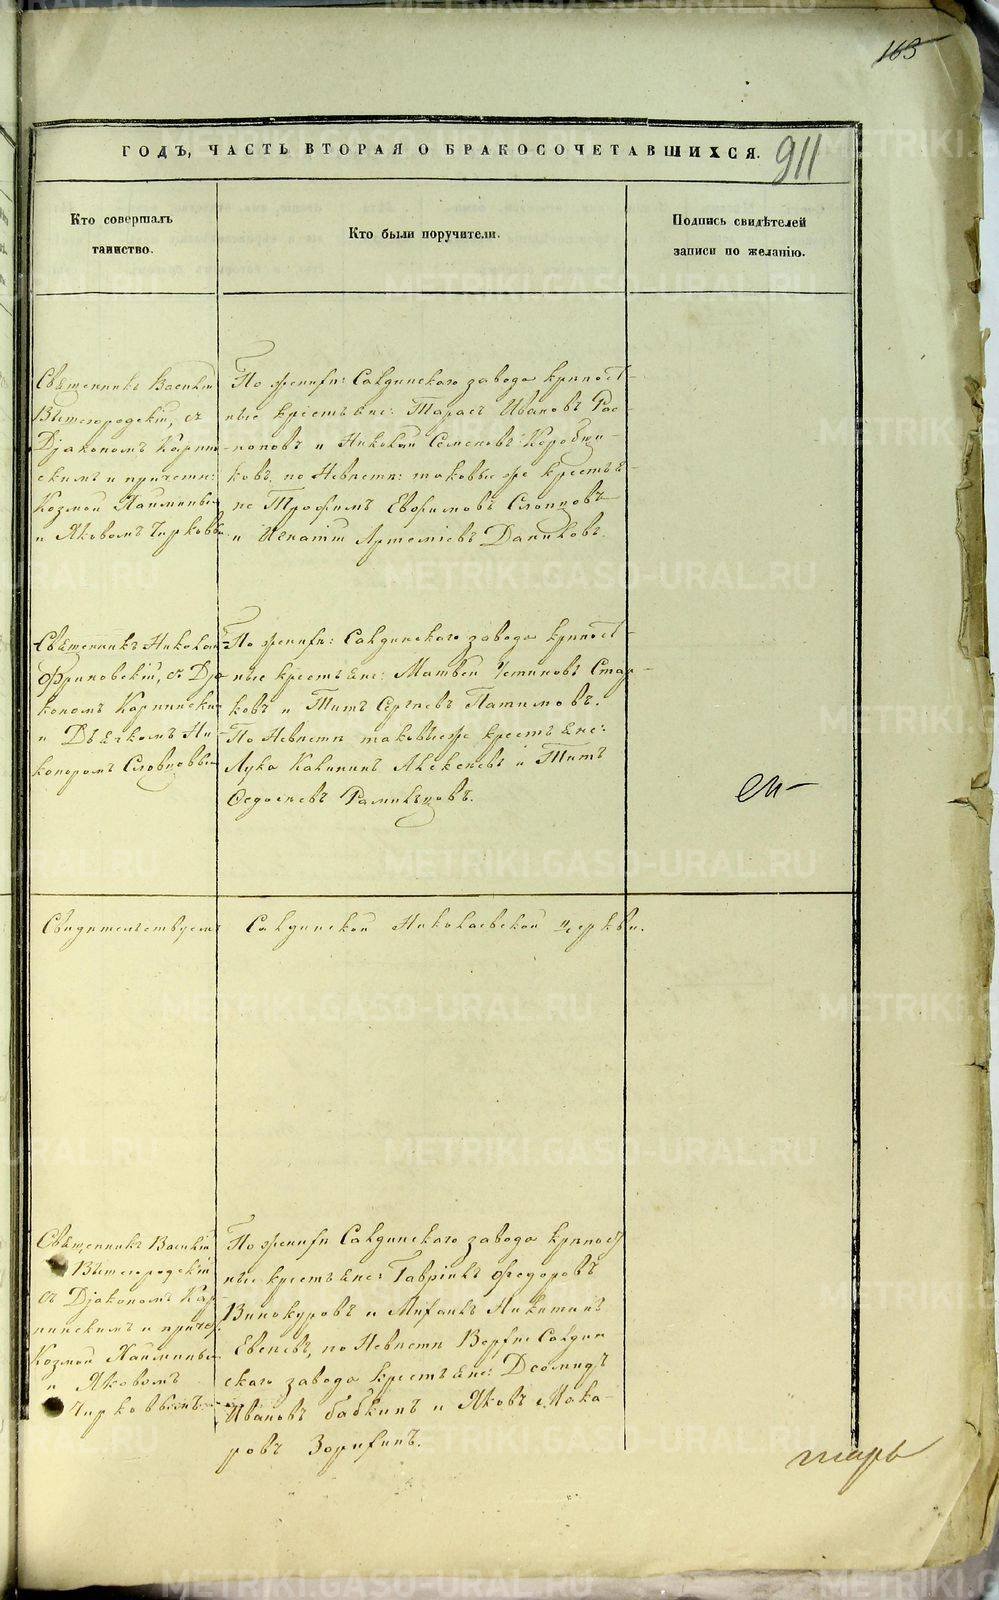 163
ГОДЪ, ЧАСТЬ ВТОРАЯ О БРАКОСОЧЕТАВШИХСЯ.
911
Кто совершалъ
таинство.
Кто были поручители.
Подпись свидѣтелей
записи по желанію.
Священникъ Василій
Вышегородскій, съ
Діакономъ Карпин-
скимъ и причетн:
Козмой
и Яковомъ Чирковы
По женихѣ: Салдинскаго завода крѣпост-
ные крестьяне: Тарасъ Ивановъ Рос-
поповъ и Николай Семеновъ Коробщи-
ковъ, по невѣстѣ: таковые же крестья-
не Трофимъ Евфимовъ
и Игнатій Артеміевъ Даниловъ.
Священникъ Николай
съ Діа
кономъ Карпински
и Дьячкомъ Ни-
каноромъ Словцовы
По женихѣ: Салдинскаго завода крѣпост-
ные крестьяне: Матвей Устиновъ Стар-
ковъ и Титъ Сергѣевъ Патимовъ.
По невѣстѣ таковыеже крестьяне:
Лука Калининъ Алексѣевъ и Титъ
Федосѣевъ
Свидѣтельствуемъ Салдинской Николаевской церкви.
Священникъ Василій
Вышегородскій
съ Діакономъ Кар-
пинскимъ и причет.
Козмой
и Яковомъ
По женихѣ Салдинскаго завода крѣпост
ные крестьяне: Гавріилъ Федоровъ
Винокуровъ и Михаилъ Никитинъ
Евсѣевъ, по невѣстѣ Верхне Салдин
скаго завода крестьяне: Деомидъ
Ивановъ Бабкинъ и Яковъ Мака-
ровъ Зорихинъ.
тарь
METRIKI.GASO-URAL.RU